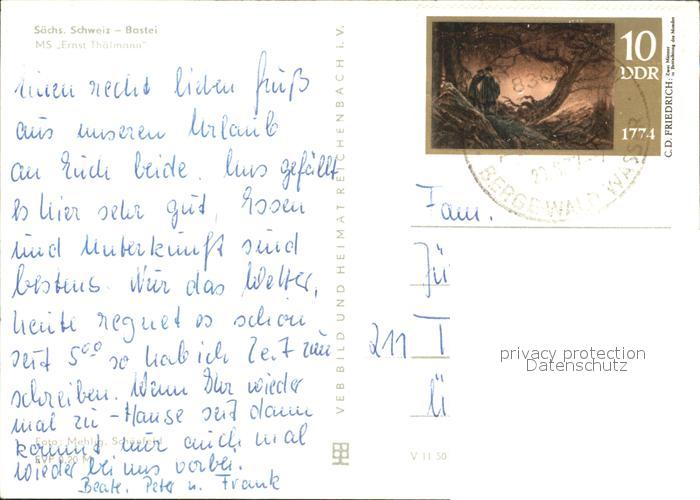 Sächs. Schweiz – Bastei
MS „Ernst Thälmann"
Einen recht lieben Gruß
aus unseren Urlaub
an Euch beide. Uns gefällt
es hier sehr gut, Essen
und Unterkunft sind
bestens. Nur das Wetter,
heute regnet es schon
seit 5⁰⁰ so hab ich Zeit zum
schreiben. Wenn Ihr wieder
mal zu-Hause seit dann
kommt nur auch mal
wieder bei uns vorbei.
Beate, Peter u. Frank
Foto: Mehlig,
EVP 0,20 M
VEB BILD UND HEIMAT REICHENBACH i. V.
V 11 50
10
DDR
1774
C. D. FRIEDRICH: Zwei Männer
in Betrachtung des Mondes
BERGE WALD WASSER
Fam.
Jü
211 T
Ü
privacy protection
Datenschutz